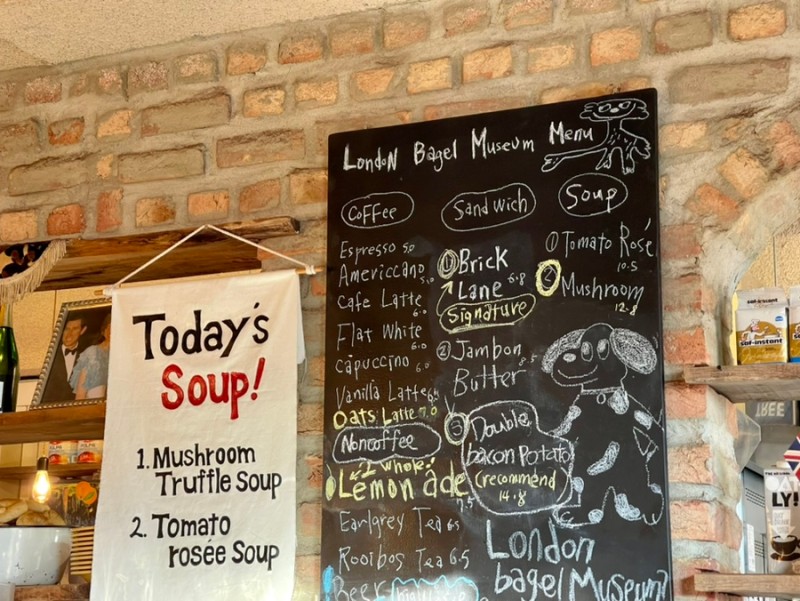 Today's
Soup!
1. Mushroom
Truffle Soup
2. Tomato
rosée Soup
London Bagel Museum Menu
Coffee
Espresso 5.0
Americcano 5.0
Cafe Latte 6.0
Flat White 6.0
Capuccino 6.0
Vanilla Latte 6.5
Oats Latte 7.0
Noncoffee
1 whole!
Lemon ade 7.5
Earlgrey Tea 6.5
Rooibos Tea 6.5
Beer
Sandwich
① Brick
Lane 6.8
Signature
② Jambon 8.5
Butter
③ Double
bacon Potato
(recommend
14.8
Soup
① Tomato Rosé
10.5
② Mushroom
12.8
London
bagel Museum
saf-instant